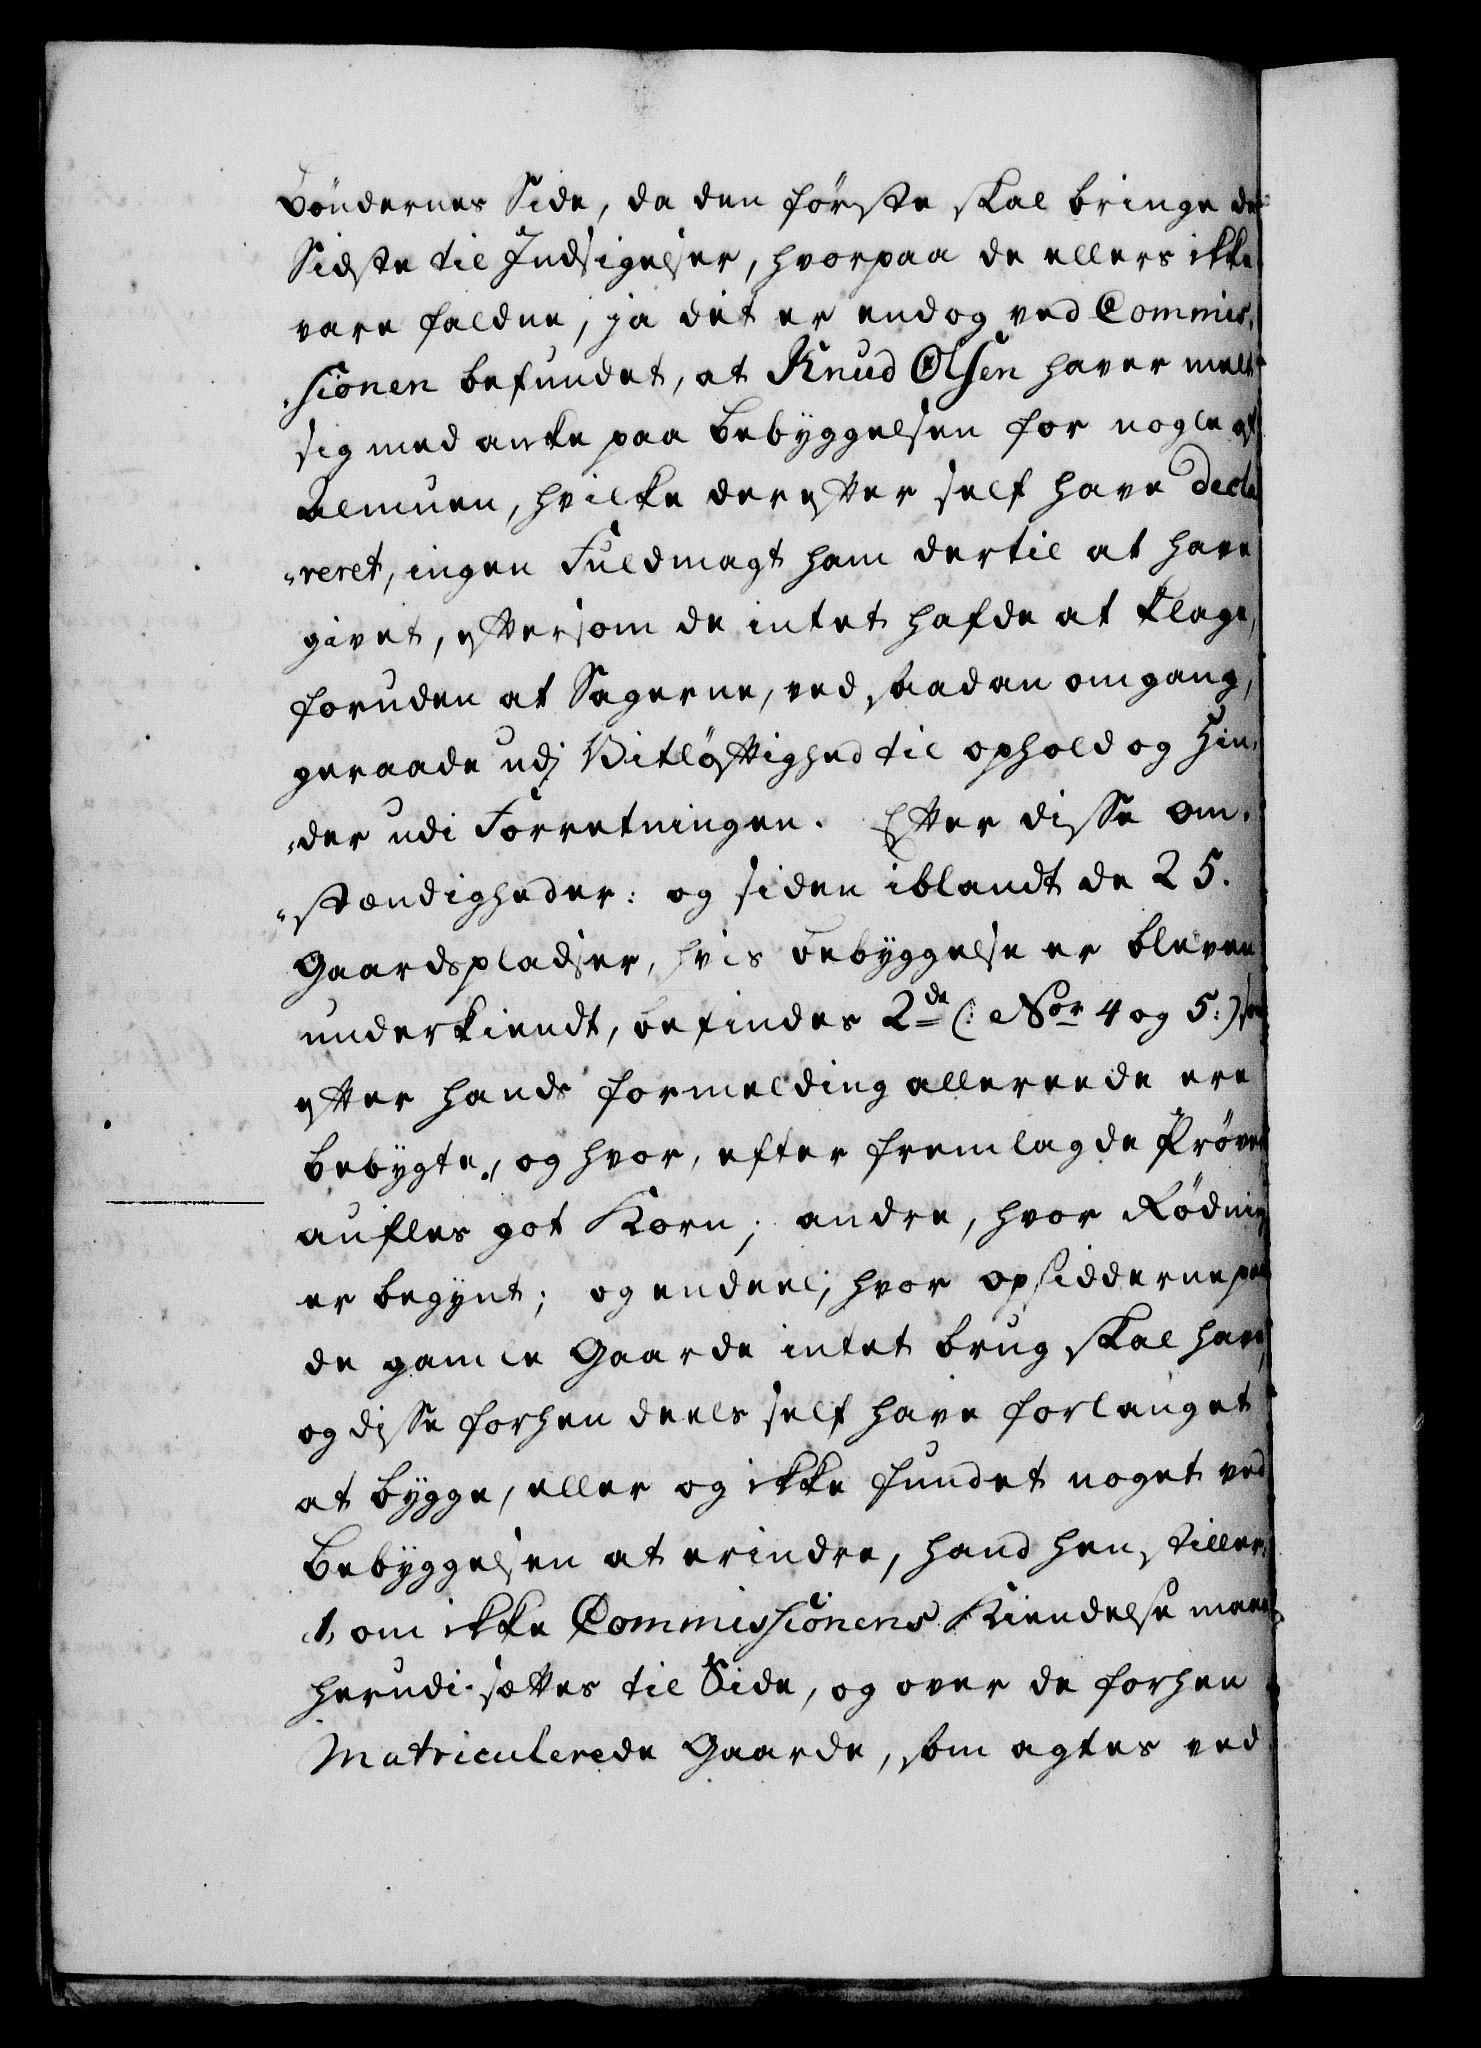 Bøndernes Side, da den første skal bringe de
Sidste til Indsigelser, hvorpaa de ellers ikke
vare faldne, ja det er endog ved Commis,
,sionen befundet, at Knud Olsen haver meldt
sig med anke paa Bebyggelsen for nogle af
Almuen, hvilke derefter self have decla
"reret, ingen Fuldmagt ham dertil at have
givet, eftersom de intet hafde at klage,
foruden at Sagerne, ved saadan omgang,
geraade udj Vitløftighed til ophold og Hin,
,der udi Forretningen. Efter disse om,
"stændigheder: og siden iblandt de 25.
Gaardspladser, hvis bebyggelse er bleven
underkiendt, befindes 2de (: No 4 og 5:) som
efter hands formelding allereede ere
bebygte, og hvor, efter fremlagde Prøver
aufles got Korn; andre, hvor Rødning
er begynt; og endeel, hvor opsidderne paa
de gamle Gaarde intet brug skal have,
og disse forhen deels self have forlanget
at bygge, eller og ikke fundet noget ved
Bebyggelsen at erindre, hand henstiller:
1, om ikke Commissionens Kiendelse maae
herudi sættes til Side, og over de forhen
Matriculerede Gaarde, som agtes ved